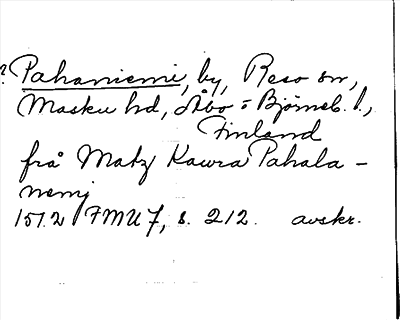 ? Pahaniemi, by, Reso sn,
Masku hd, Åbo o Björneb. l.,
Finland
frå Matz Kaura Pahala-
nemj
1512 FMU 7, s. 212. avskr.